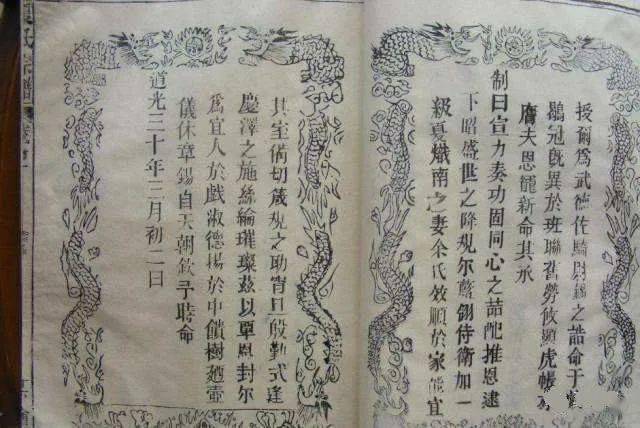 授爾為武德佐騎尉錫之誥命于
鶡冠旣異於班聯舊勞攸顯虎帳
膺夫恩寵新命其承
制曰宣力奏功固同心之喆配推恩逮
下昭盛世之隆規尔藍翎侍衛加一
級夏熾南之妻余氏效順於家能宜
其室偹切箴規之助宵旦殷勤式逢
慶澤之施絲綸璀璨茲以覃恩封尔
為宜人於戲淑德揚於中饋樹廼壼
儀休章錫自天朝欽予時命
道光三十年三月初二日
氏宗譜